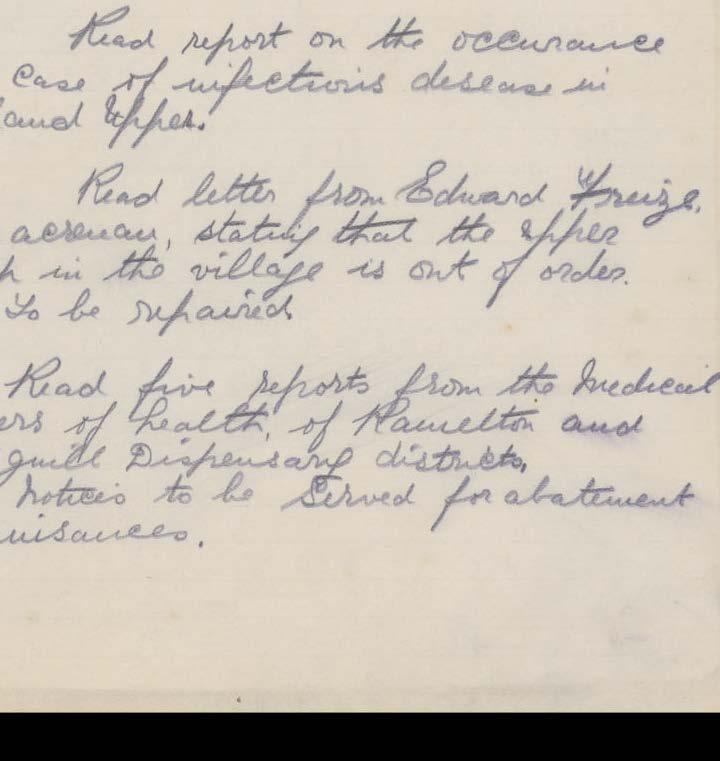 Read report on the occurance
case of infectious disease in
and Upper.
Read letter from Edward Freize,
stating that the upper
in the village is out of order.
To be repaired.
Read five reports from the Medical
ers of health, of Ramelton and
guill Dispensary districts,
Notices to be Served for abatement
uisances.